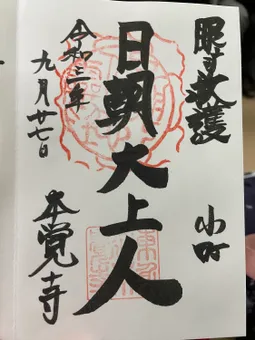 眼 救護
小町
日朝大上人
令和三年
九月廿七日
本覚寺